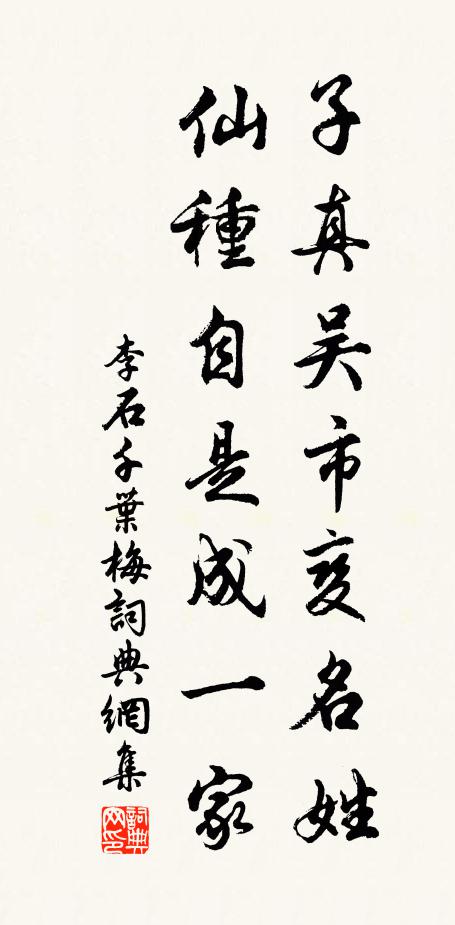 子真吴市变名姓
仙種自是成一家
李石千葉梅詞典網集
詞典網印